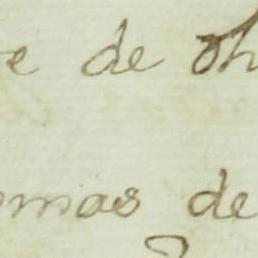 e de oh
omas de